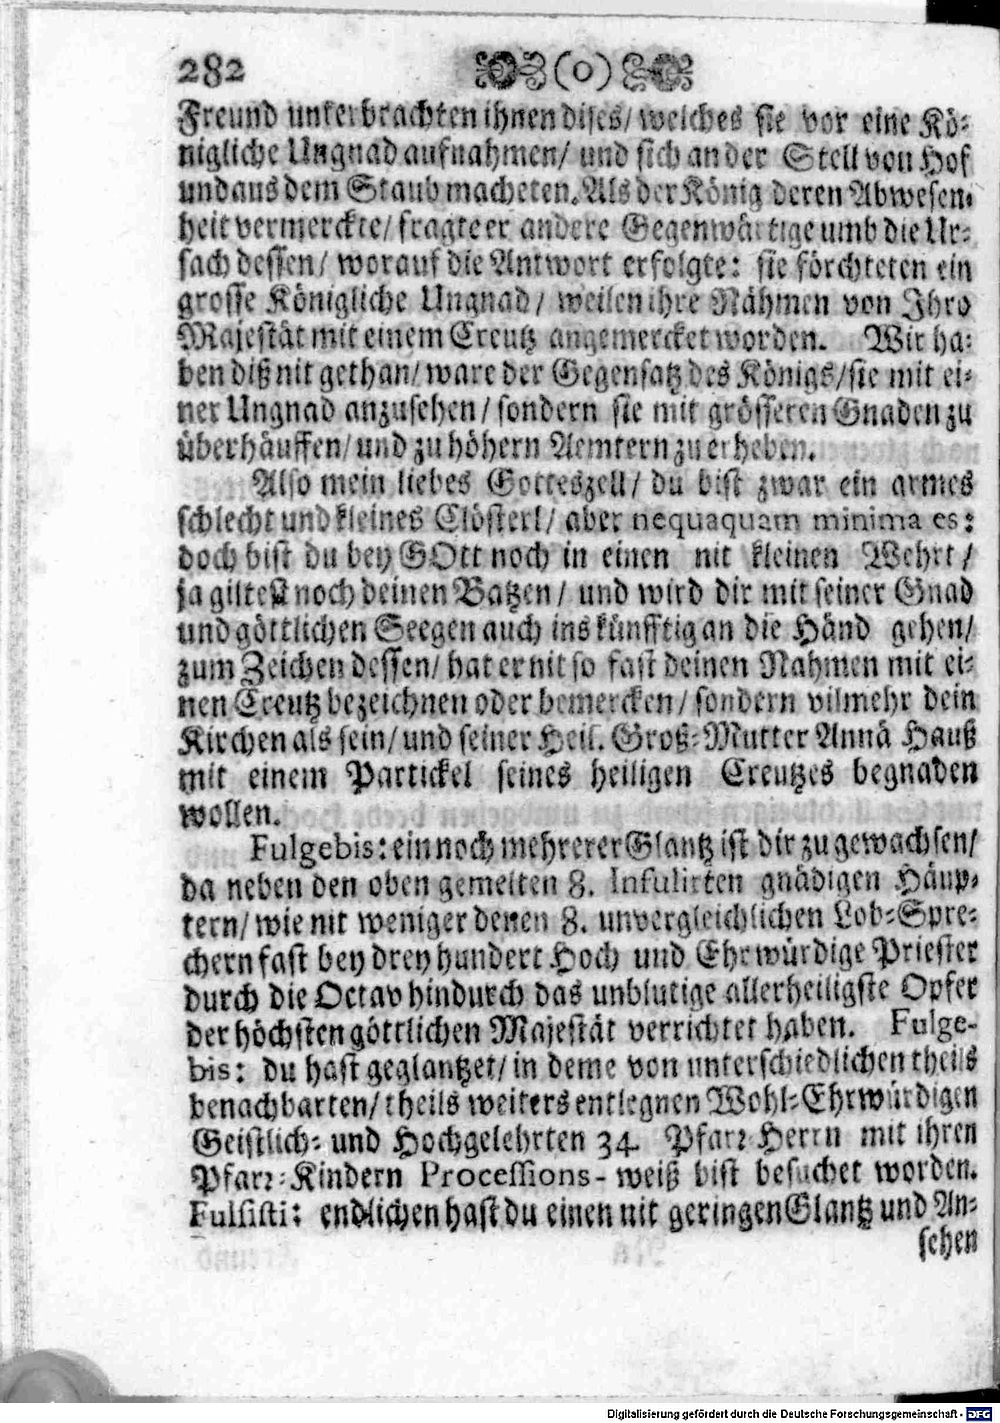 282 (o)
Freund unterbrachten ihnen dises/ welches sie vor eine Kö-
nigliche Ungnad aufnahmen/ und sich an der Stell von Hof
und aus dem Staub macheten. Als der König deren Abwesen-
heit vermerckte/ fragte er andere Gegenwärtige umb die Ur-
sach dessen/ worauf die Antwort erfolgte: sie förchteten ein
grosse Königliche Ungnad/ weilen ihre Nähmen von Ihro
Majestät mit einem Creutz angemercket worden. Wir ha-
ben diß nit gethan/ ware der Gegensatz des Königs/ sie mit ei-
ner Ungnad anzusehen/ sondern sie mit grösseren Gnaden zu
überhäuffen/ und zu höhern Aemtern zu erheben.
Also mein liebes Gotteszell/ du bist zwar ein armes
schlecht und kleines Clösterl/ aber nequaquam minima es:
doch bist du bey GOtt noch in einen nit kleinen Wehrt/
ja giltest noch deinen Batzen/ und wird dir mit seiner Gnad
und göttlichen Seegen auch ins künfftig an die Händ gehen/
zum Zeichen dessen/ hat er nit so fast deinen Nahmen mit ei-
nen Creutz bezeichnen oder bemercken/ sondern vilmehr dein
Kirchen als sein/ und seiner Heil. Groß-Mutter Annä Hauß
mit einem Partickel seines heiligen Creutzes begnaden
wollen.
Fulgebis: ein noch mehrerer Glantz ist dir zugewachsen/
da neben den oben gemelten 8. Infulirten gnädigen Häup-
tern/ wie nit weniger denen 8. unvergleichlichen Lob-Spre-
chern fast bey drey hundert Hoch und Ehrwürdige Priester
durch die Octav hindurch das unblutige allerheiligste Opfer
der höchsten göttlichen Majestät verrichtet haben. Fulge-
bis: du hast geglantzet/ in deme von unterschiedlichen theils
benachbarten/ theils weiters entlegnen Wohl-Ehrwürdigen
Geistlich- und Hochgelehrten 34 Pfarr Herrn mit ihren
Pfarr-Kindern Processions-weiß bist besuchet worden.
Fulsisti: endlichen hast du einen nit geringen Glantz und An-
sehen
Digitalisierung gefördert durch die Deutsche Forschungsgemeinschaft - DFG